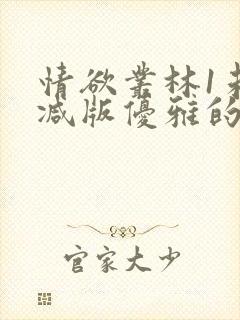 情欲叢林1未
减版優雅的
官家大少